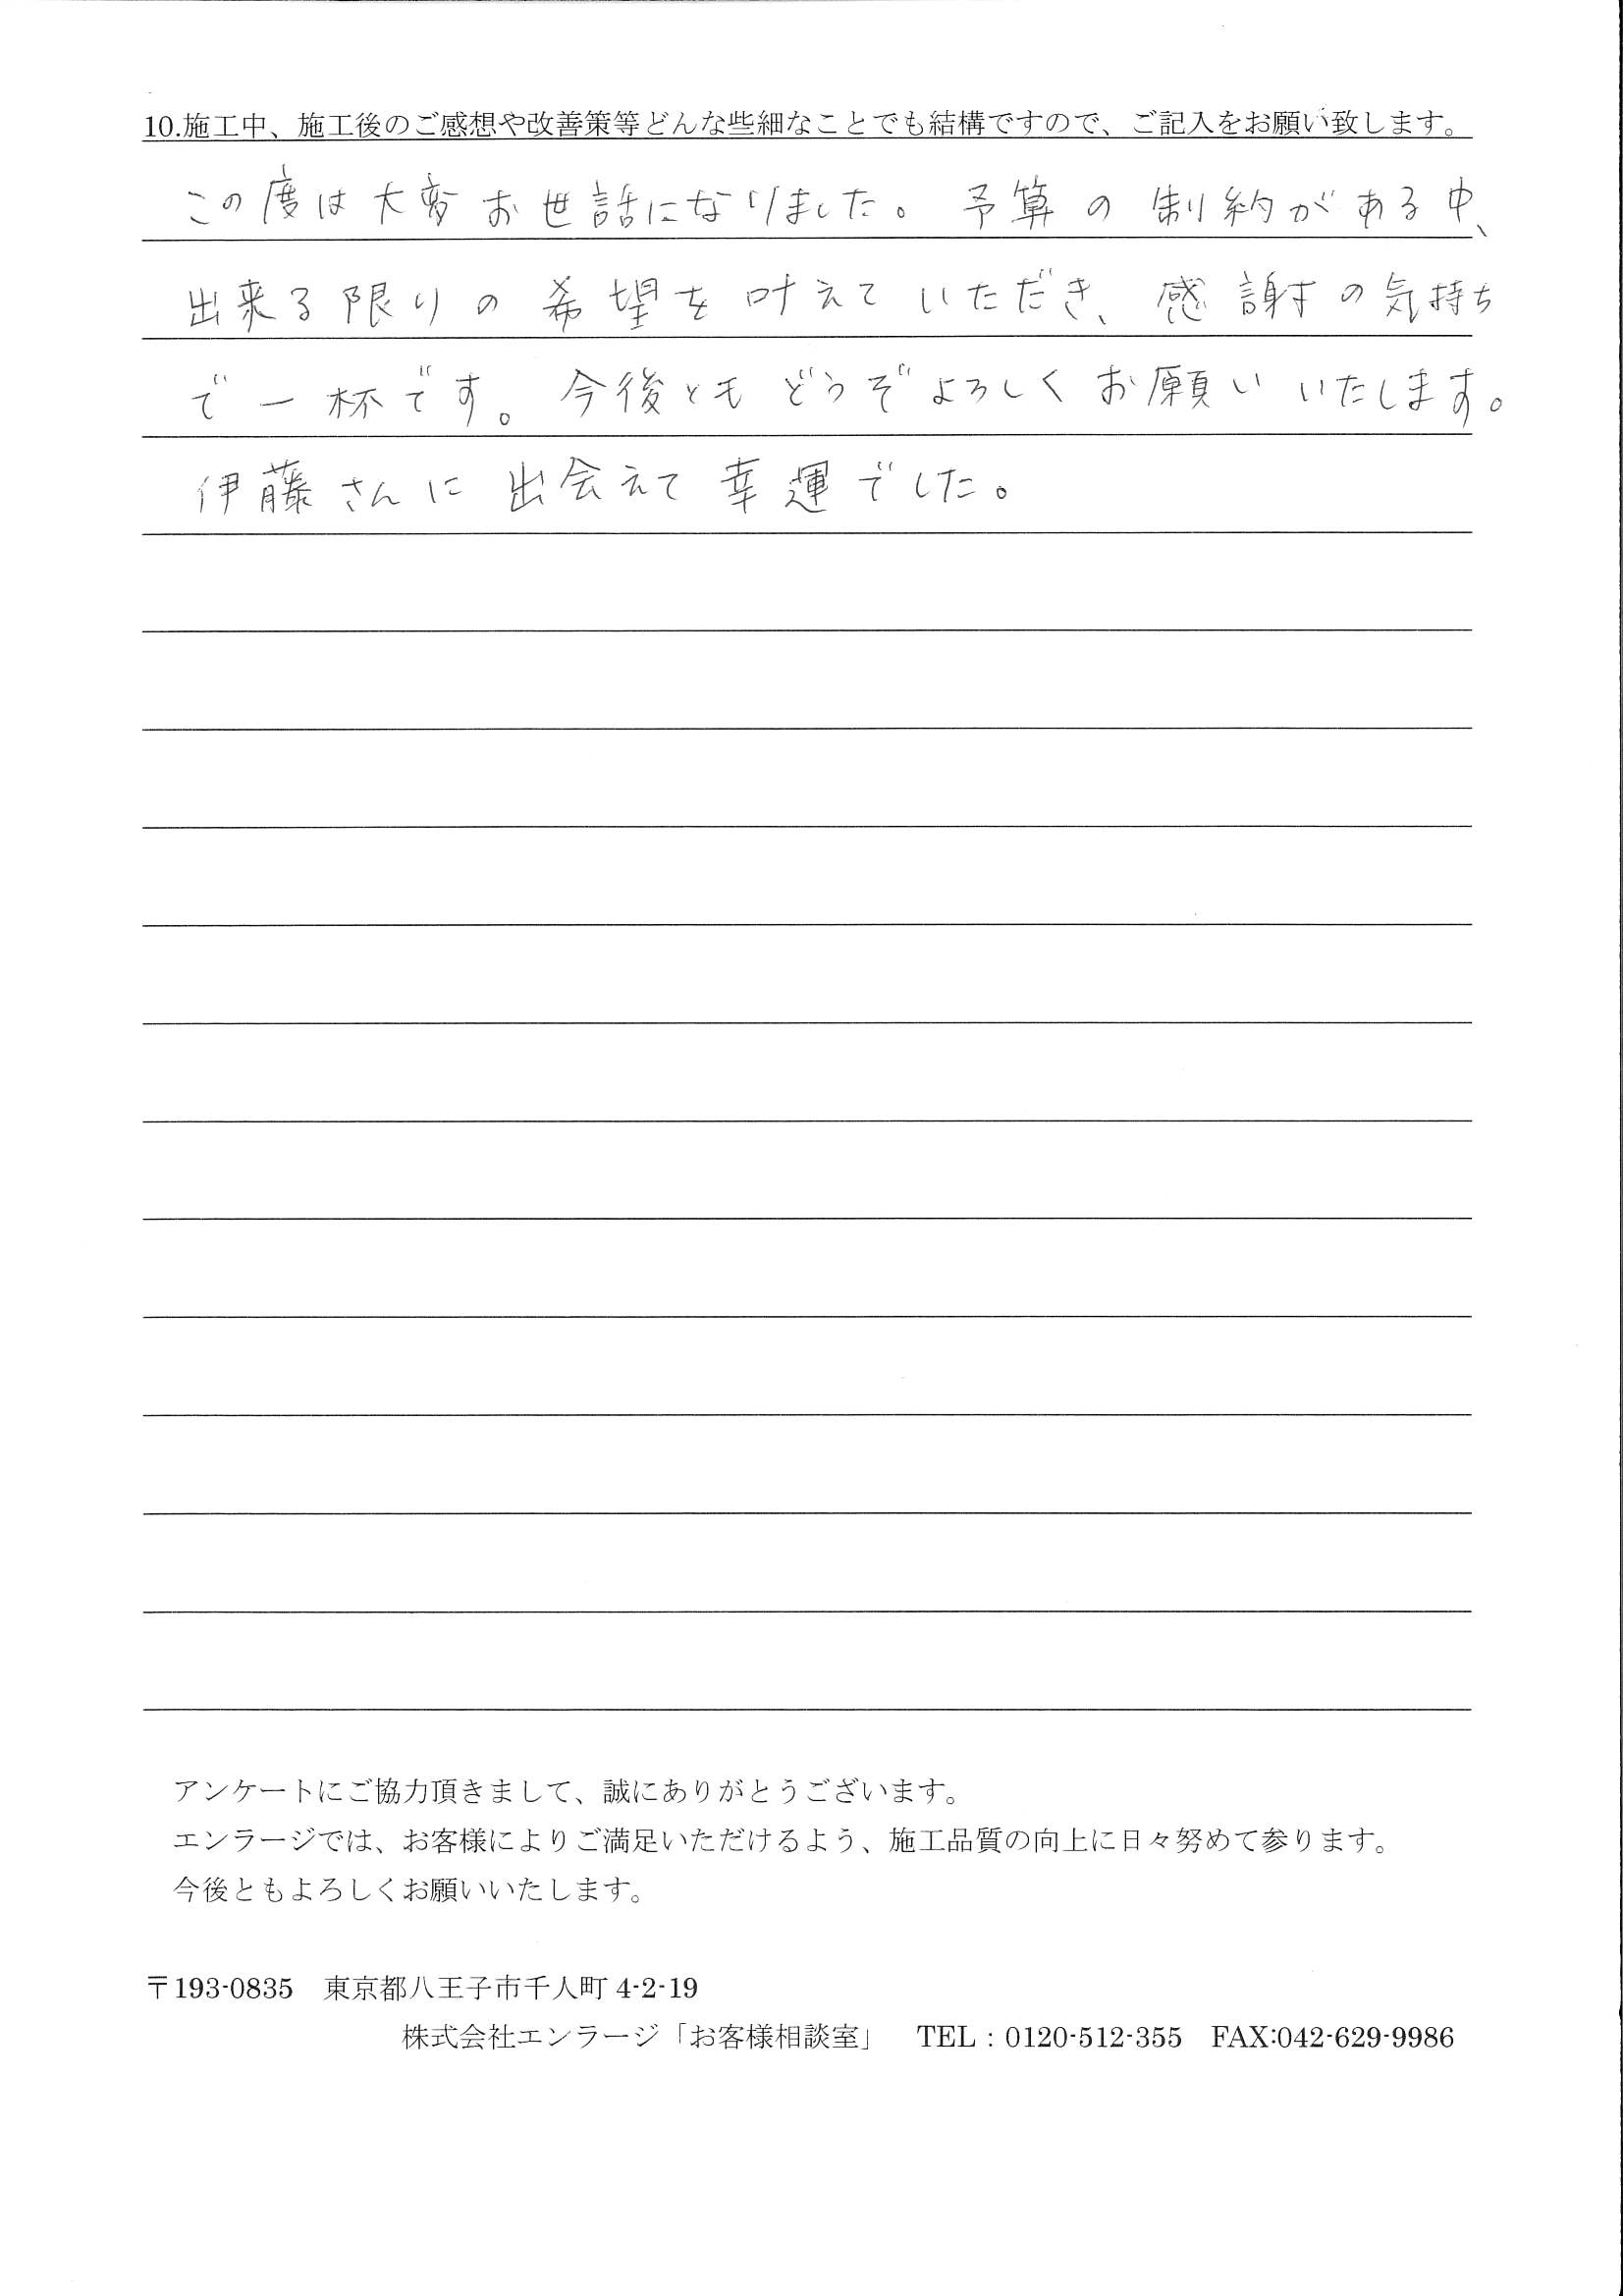 10.施工中、施工後のご感想や改善策等どんな些細なことでも結構ですので、ご記入をお願い致します。
この度は大変お世話になりました。予算の制約がある中、
出来る限りの希望を叶えていただき、感謝の気持ち
で一杯です。今後ともどうぞよろしくお願いいたします。
伊藤さんに出会えて幸運でした。
アンケートにご協力頂きまして、誠にありがとうございます。
エンラージでは、お客様によりご満足いただけるよう、施工品質の向上に日々努めて参ります。
今後ともよろしくお願いいたします。
〒193-0835　東京都八王子市千人町 4-2-19
株式会社エンラージ「お客様相談室」　TEL：0120-512-355　FAX:042-629-9986